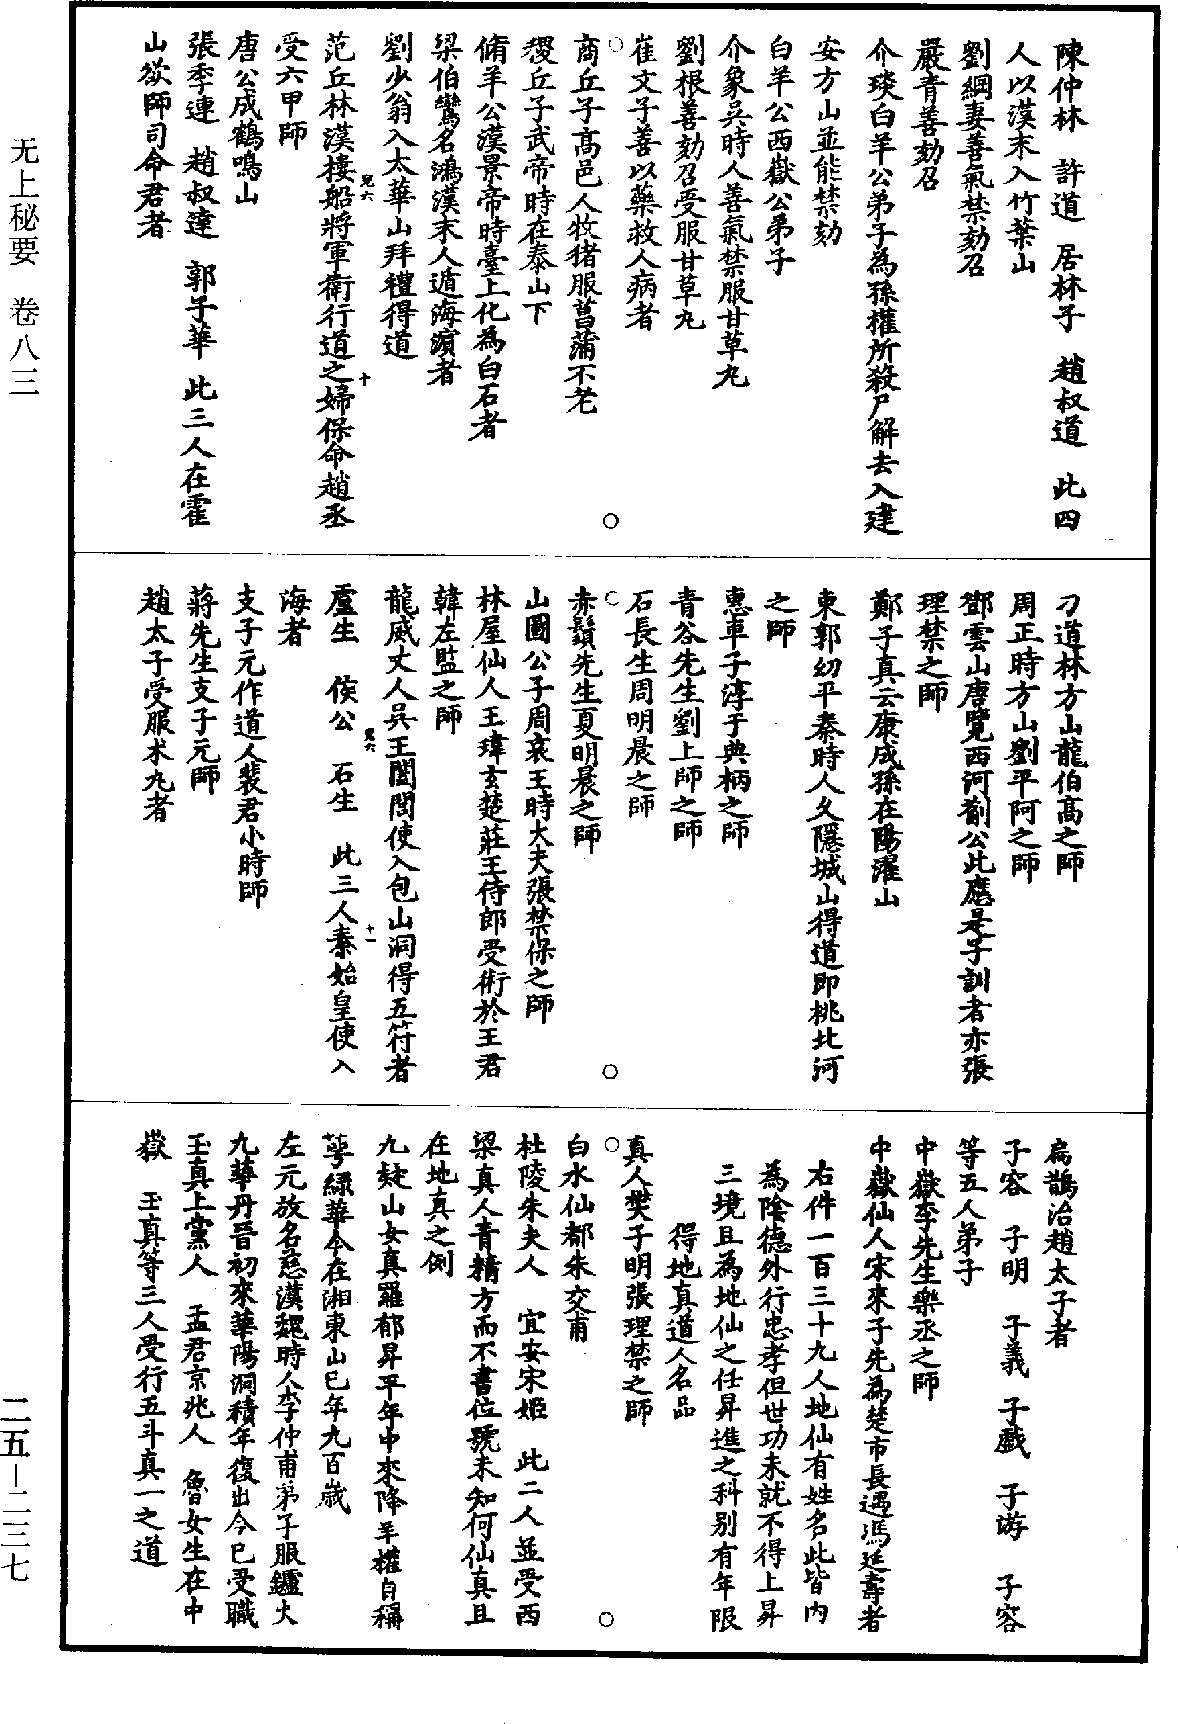 无上秘要 卷八三
陳仲林 許道 居林子 趙叔道 此四
人以漢末入竹葉山
劉綱妻善氣禁劾召
嚴青善劾召
介琰白羊公弟子為孫權所殺尸解去入建
安方山並能禁劾
白羊公西嶽公弟子
介象吳時人善氣禁服甘草丸
劉根善劾召受服甘草丸
崔文子善以藥救人病者
商丘子高邑人牧猪服菖蒲不老
稷丘子武帝時在泰山下
脩羊公漢景帝時臺上化為白石者
梁伯鸞名鴻漢末人遁海濱者
劉少翁入太華山拜禮得道
范丘林漢樓船將軍衛行道之婦保命趙丞
受六甲師
唐公成鶴鳴山
張季連 趙叔達 郭子華 此三人在霍
山欲師司命君者
刁道林方山龍伯高之師
周正時方山劉平阿之師
鄧雲山唐覽西河薊公此應是子訓者亦張
理禁之師
鄭子真云康成孫在陽濯山
東郭幼平秦時人久隱城山得道即桃北河
之師
惠車子淳于典柄之師
青谷先生劉上師之師
石長生周明晨之師
赤鬚先生夏明晨之師
山圖公子周哀王時大夫張禁保之師
林屋仙人王瑋玄楚莊王侍郎受術於王君
韓左監之師
龍威丈人吳王闔閭使入包山洞得五符者
盧生 侯公 石生 此三人秦始皇使入
海者
支子元作道人裴君小時師
蔣先生支子元師
趙太子受服朮九者
扁鵲治趙太子者
子容 子明 子義 子戲 子游 子容
等五人弟子
中嶽李先生樂丞之師
中嶽仙人宋來子先為楚市長遇馮延壽者
右件一百三十九人地仙有姓名此皆内
為陰德外行忠孝但世功未就不得上昇
三境且為地仙之任昇進之科别有年限
得地真道人名品
真人樊子明張理禁之師
白水仙都朱交甫
杜陵朱夫人 宜安宋姬 此二人並受西
梁真人青精方而不書位號未知何仙真且
在地真之例
九疑山女真羅郁昇平年中來降羊權自稱
萼綠華今在湘東山已年九百歲
左元放名慈漢魏時人李仲甫弟子服鑪火
九華丹晉初來華陽洞積年復出今已受職
王真上黨人 孟君京兆人 魯女生在中
嶽 王真等三人受行五斗真一之道
二五-二三七